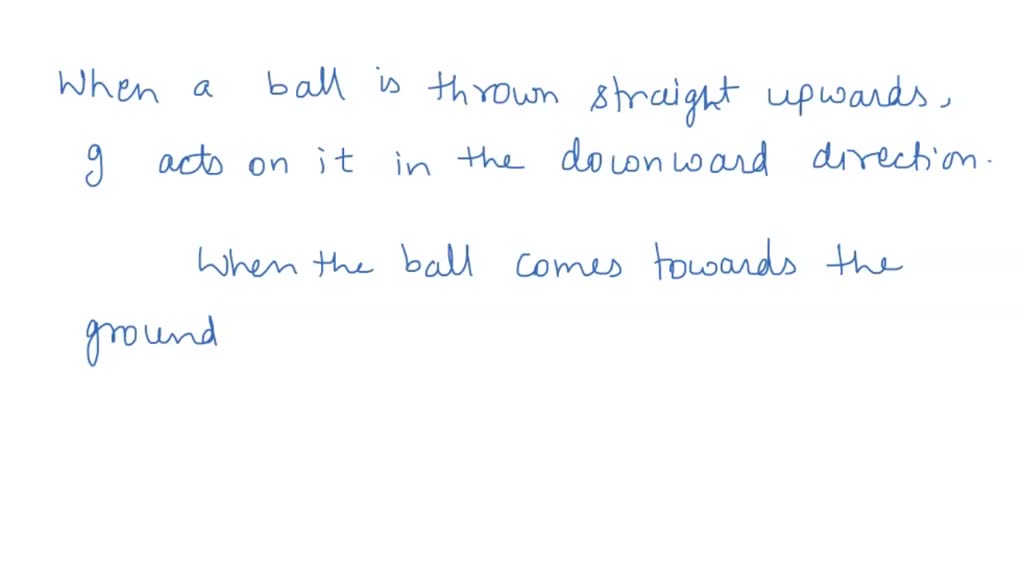 When a ball is thrown straight upwards,
g acts on it in the downward direction.
When the ball comes towards the
ground